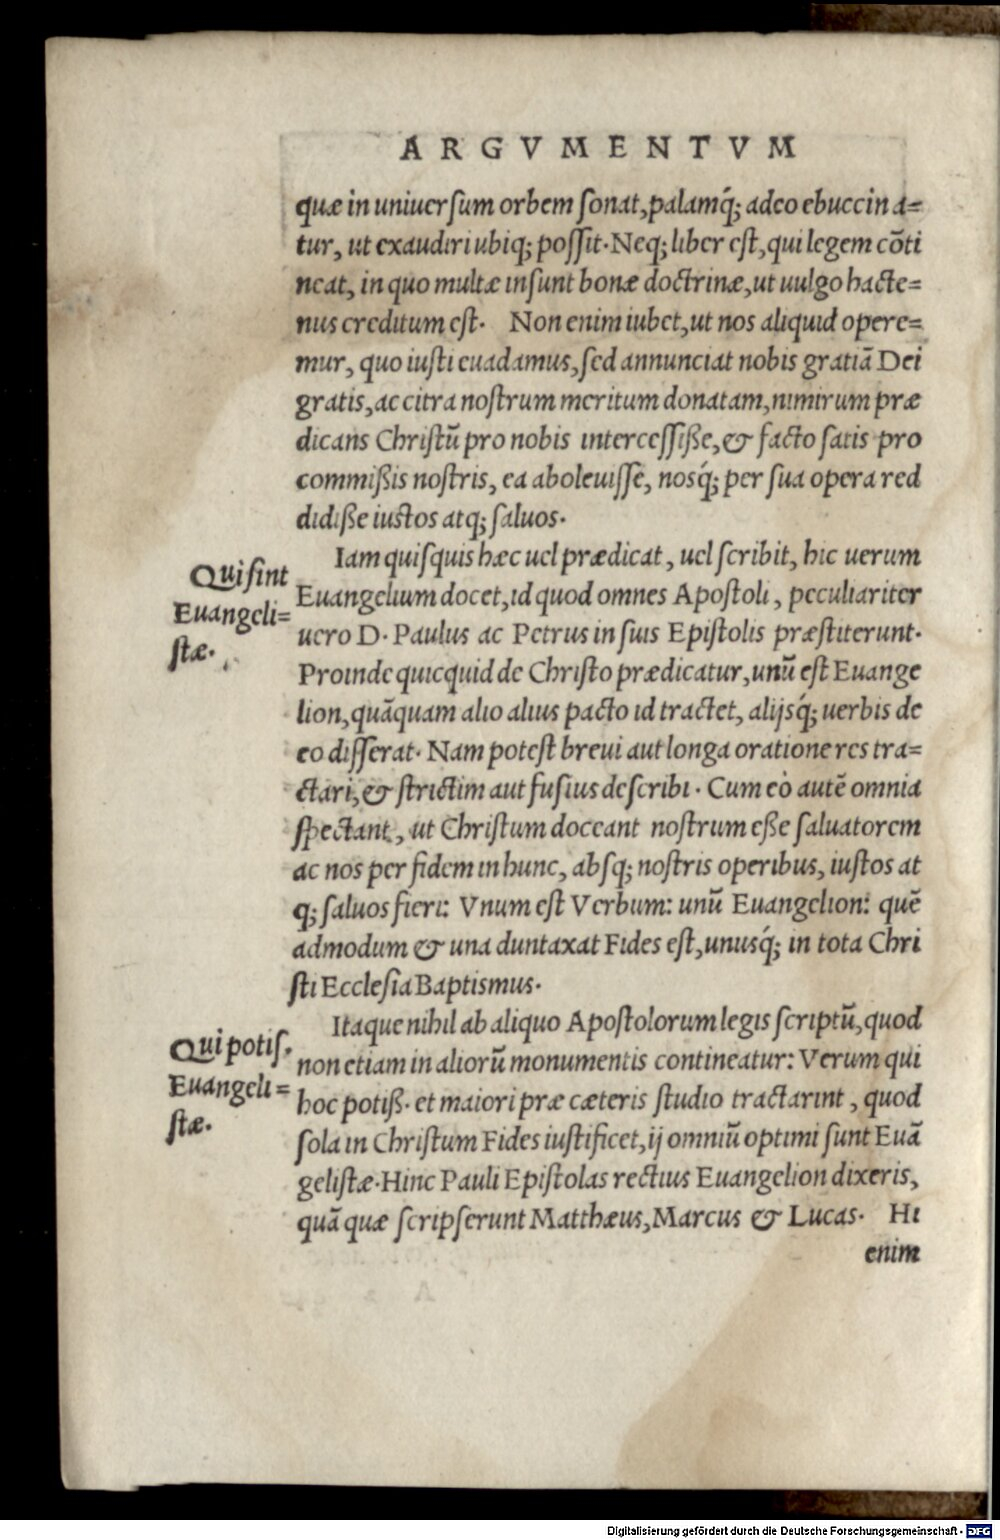 ARGVMENTVM
quæ in uniuersum orbem sonat, palamq́; adeo ebuccina=
tur, ut exaudiri ubiq; possit. Neq; liber est, qui legem cõti
neat, in quo multæ insunt bonæ doctrinæ, ut uulgo hacte=
nus creditum est. Non enim iubet, ut nos aliquid opere=
mur, quo iusti euadamus, sed annunciat nobis gratiã Dei
gratis, ac citra nostrum meritum donatam, nimirum præ
dicans Christũ pro nobis intercessiße, & facto satis pro
commißis nostris, ea aboleuisse, nosq́; per sua opera red
didiße iustos atq; saluos.
Iam quisquis hæc uel prædicat, uel scribit, hic uerum
Qui sint
Euangeli=
stæ.
Euangelium docet, id quod omnes Apostoli, peculiariter
uero D. Paulus ac Petrus in suis Epistolis præstiterunt.
Proinde quicquid de Christo prædicatur, unũ est Euange
lion, quãquam alio alius pacto id tractet, alijsq́; uerbis de
eo disserat. Nam potest breui aut longa oratione res tra=
ctari, & strictim aut fusius describi. Cum eò autẽ omnia
spectant, ut Christum doceant nostrum eße saluatorem
ac nos per fidem in hunc, absq; nostris operibus, iustos at
q; saluos fieri: Vnum est Verbum: unũ Euangelion: quẽ
admodum & una duntaxat Fides est, unusq́; in tota Chri
sti Ecclesia Baptismus.
Itaque nihil ab aliquo Apostolorum legis scriptũ, quod
Qui potis.
Euangeli=
stæ.
non etiam in aliorũ monumentis contineatur: Verum qui
hoc potiß. et maiori præ cæteris studio tractarint, quod
sola in Christum Fides iustificet, ij omniũ optimi sunt Euã
gelistæ. Hinc Pauli Epistolas rectius Euangelion dixeris,
quã quæ scripserunt Matthæus, Marcus & Lucas. Hi
enim
Digitalisierung gefördert durch die Deutsche Forschungsgemeinschaft - DFG